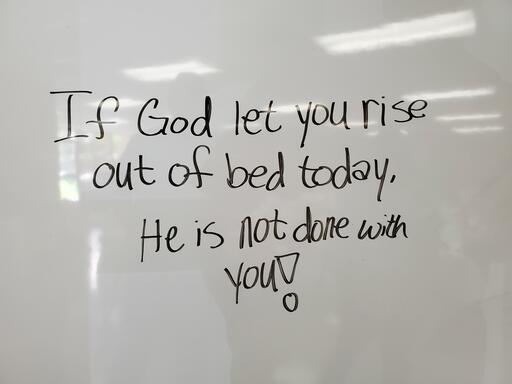 If God let you rise
out of bed today.
He is not done with
you!